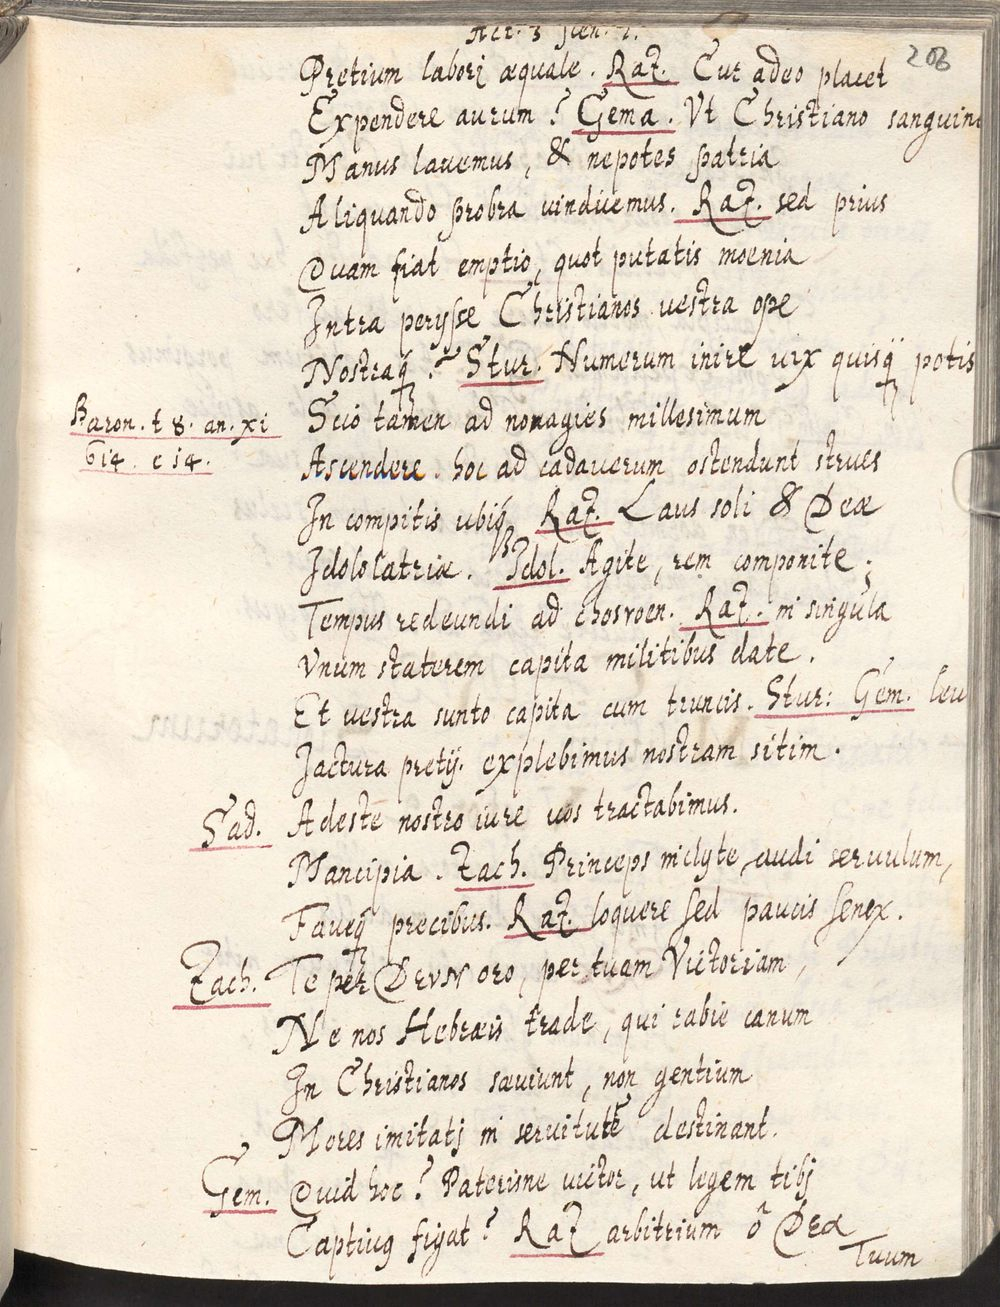 Act. 3 scen. 1.
206
Pretium laborj æquale. Raz. Cur adeo placet
Expendere aurum? Gema. Vt Christiano sanguine
Manus lauemus, & nepotes patria
Aliquando probra uindicemus. Raz. sed prius
Quam fiat emptio, quot putatis moenia
Intra perysse Christianos uestra ope
Nostraq́? Stur. Numerum inire uix quisq́ potis
Baron. t 8. an. xi
614. c 14.
Scio tamen ad nonagies millesimum
Ascendere. hoc ad cadauerum ostendunt strues
In compitis ubiq́ Raz. Laus soli & Deæ
Idololatriæ. Idol. Agite, rem componite;
Tempus redeundi ad Chosroen. Raz. in singula
Vnum staterem capita militibus date.
Et uestra sunto capita cum truncis. Stur: Gem. leui
Jactura pretij. explebimus nostram sitim.
Sad. Adeste nostro iure uos tractabimus.
Mancipia. Zach. Princeps inclyte, audi seruulum,
Faueq́ precibus. Raz. loquere sed paucis senex.
Zach. Te per DEVM oro, per tuam Victoriam,
Ne nos Hebræis trade, qui rabie canum
In Christianos sæuiunt, non gentium
Mores imitatj in seruitutē destinant.
Gem. Quid hoc? Paterisne uictor, ut legem tibj
Captiuq figat? Raz arbitrium ô Dea
Tuum